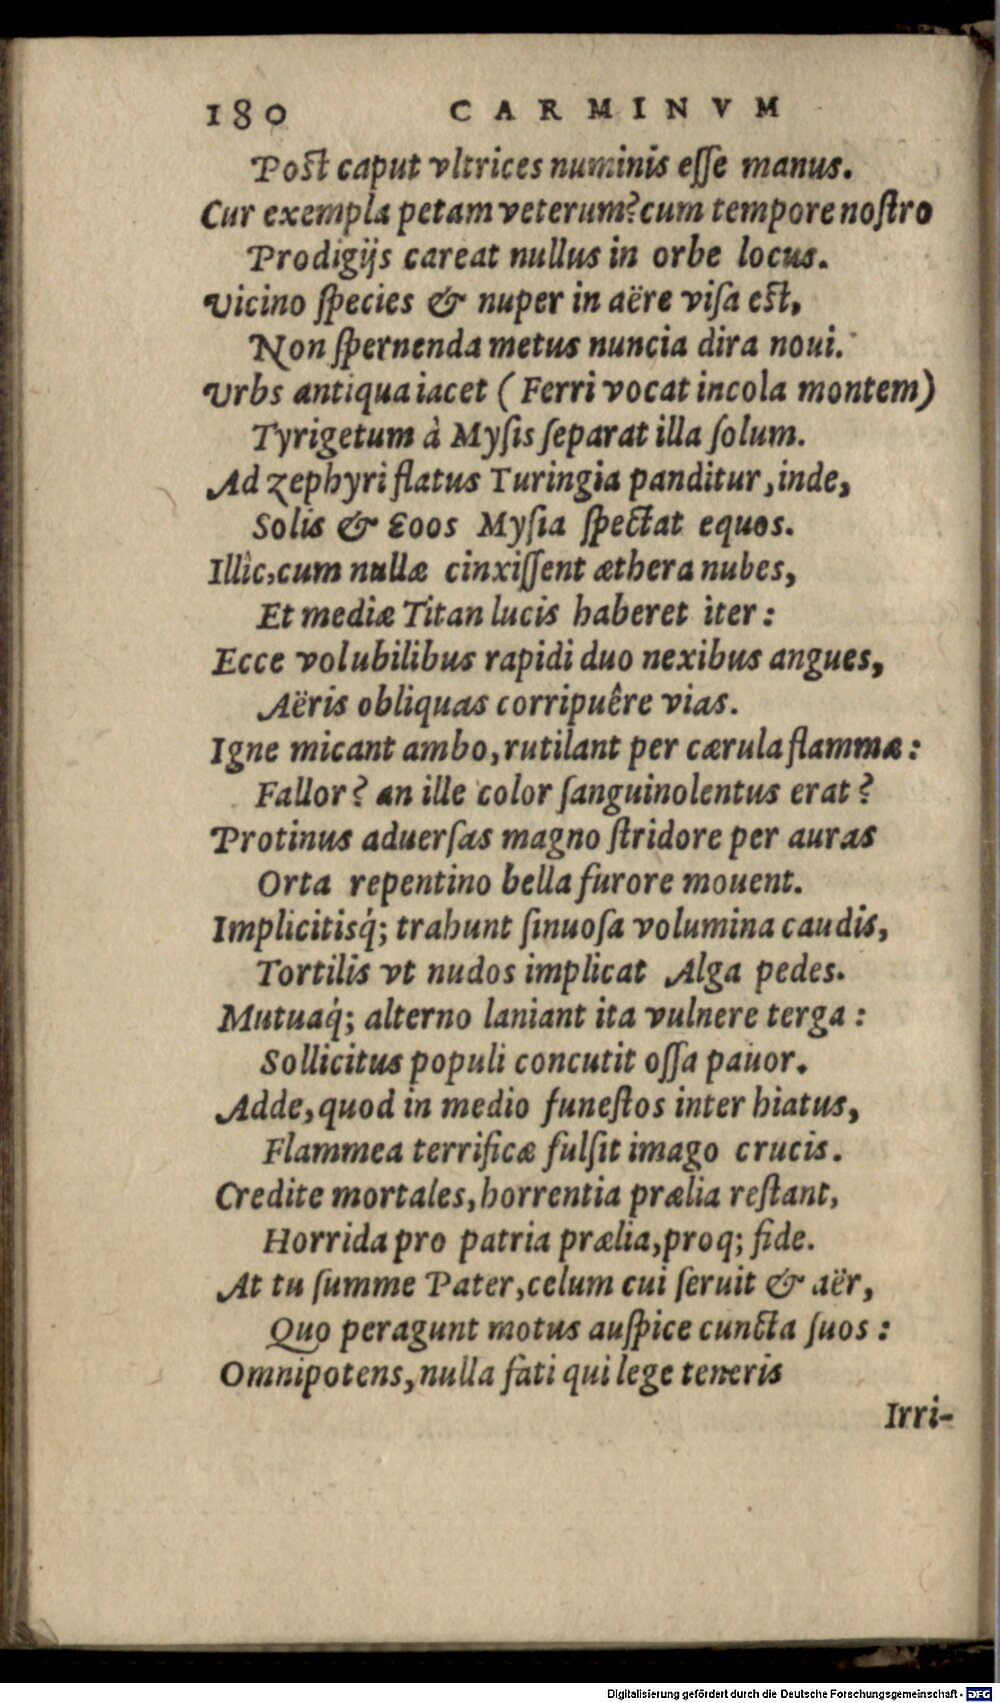 180 CARMINVM
Post caput vltrices numinis eſſe manus.
Cur exempla petam veterum? cum tempore noſtro
Prodigijs careat nullus in orbe locus.
Vicino ſpecies & nuper in aëre viſa est,
Non ſpernenda metus nuncia dira noui.
Vrbs antiqua iacet ( Ferri vocat incola montem)
Tyrigetum à Myſis ſeparat illa ſolum.
Ad zephyri flatus Turingia panditur, inde,
Solis & Eoos Myſia ſpectat equos.
Illîc, cum nullæ cinxiſſent æthera nubes,
Et mediæ Titan lucis haberet iter:
Ecce volubilibus rapidi duo nexibus angues,
Aëris obliquas corripuêre vias.
Igne micant ambo, rutilant per cærula flammæ:
Fallor? an ille color ſanguinolentus erat?
Protinus aduerſas magno ſtridore per auras
Orta repentino bella furore mouent.
Implicitisq́; trahunt ſinuoſa volumina caudis,
Tortilis vt nudos implicat Alga pedes.
Mutuaq́; alterno laniant ita vulnere terga:
Sollicitus populi concutit oſſa pauor.
Adde, quod in medio funeſtos inter hiatus,
Flammea terrificæ fulſit imago crucis.
Credite mortales, horrentia prælia reſtant,
Horrida pro patria prælia, proq; fide.
At tu ſumme Pater, celum cui ſeruit & aër,
Quo peragunt motus auſpice cuncta ſuos:
Omnipotens, nulla fati qui lege teneris
Irri-
Digitalisierung gefördert durch die Deutsche Forschungsgemeinschaft - DFG